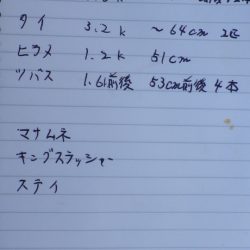 タイ 3.2k ～64cm 2匹
ヒラメ 1.2k 51cm
ツバス 1.6前後 53cm前後 4本
マナムネ
キングスラッシャー
ステイ